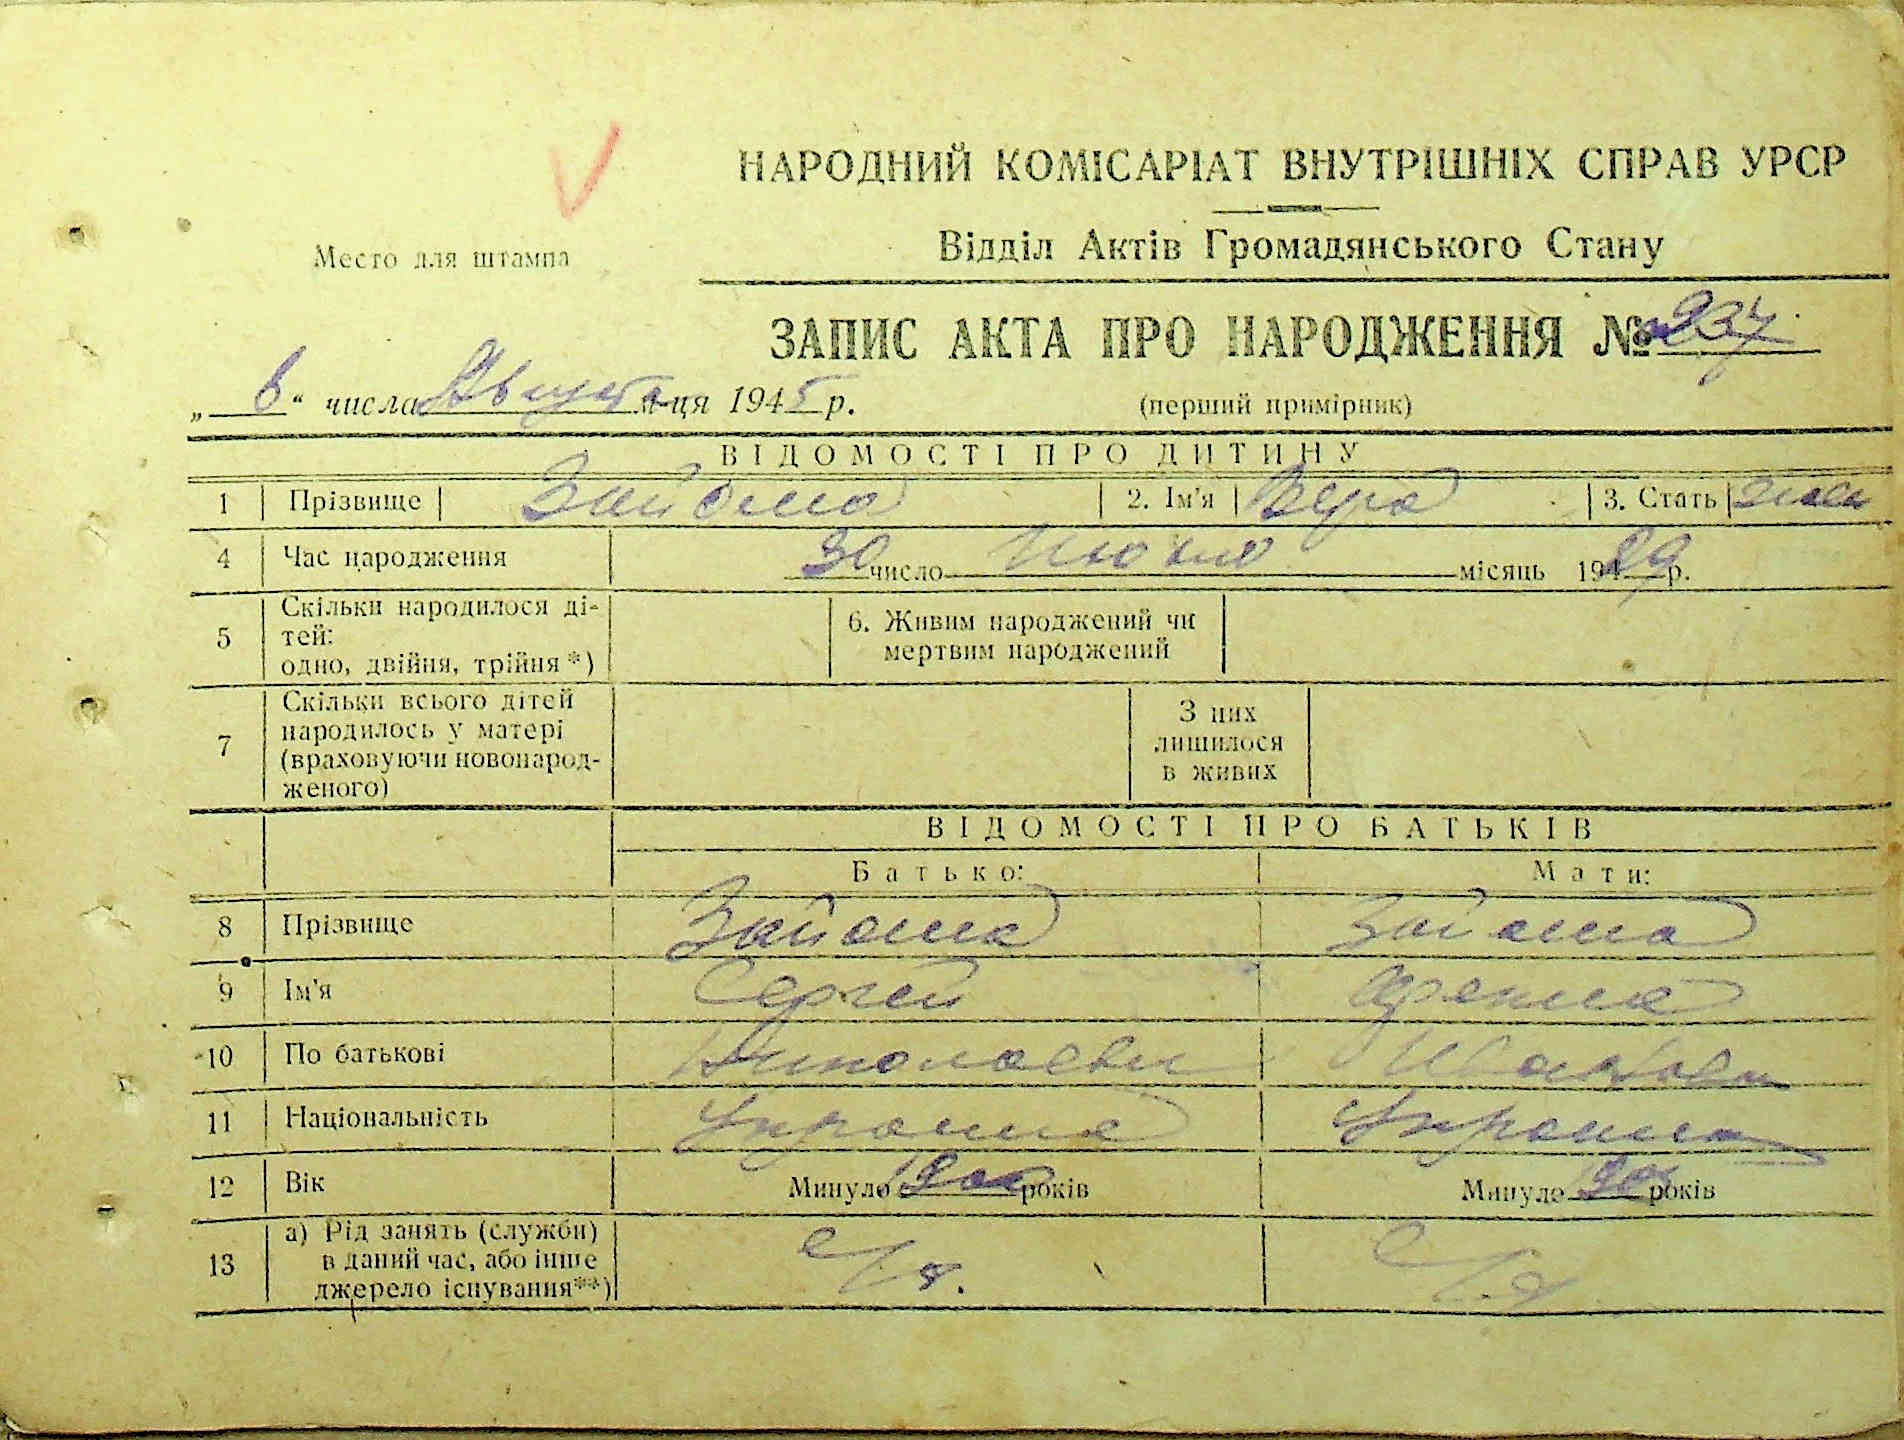 НАРОДНИЙ КОМІСАРІАТ ВНУТРІШНІХ СПРАВ УРСР
Место для штампа
Відділ Актів Громадянського Стану
ЗАПИС АКТА ПРО НАРОДЖЕННЯ № 237
„ 6 “ числа Августа м-ця 1945 р.
(перший примірник)
ВІДОМОСТІ ПРО ДИТИНУ
1 Прізвище 2. Ім'я Вера 3. Стать жен
4 Час народження 30 число місяць 1929 р.
5 Скільки народилося ді-
тей:
одно, двійня, трійня *)
6. Живим народжений чи
мертвим народжений
7 Скільки всього дітей
народилось у матері
(враховуючи новонарод-
женого)
З них
лишилося
в живих
ВІДОМОСТІ ПРО БАТЬКІВ
Батько: Мати:
8 Прізвище
9 Ім'я Сергей
10 По батькові Николаевич Ивановна
11 Національність
12 Вік Минуло років Минуло років
13 а) Рід занять (служби)
в даний час, або інше
джерело існування**)